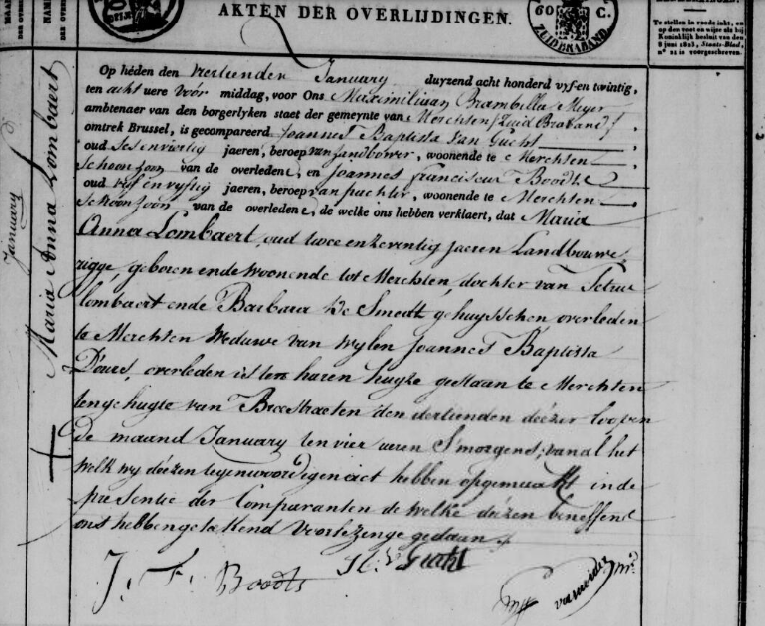 AKTEN DER OVERLIJDINGEN.
60 C.
ZUID BRABAND.
Te stellen in
op den voet en wijze als bij
Koninklijk besluit van den
8 junij 1823, Staats-Blad,
n° 21 is voorgeschreven.
January
Maria Anna Lombaert
Op héden den veertienden January duyzend acht honderd vyf-en twintig,
ten acht uere vóór middag, voor Ons Maximiliaan Brambilla Meyer
ambtenaer van den borgerlyken staet der gemeynte van Merchten /Zuid Braband/
omtrek Brussel, is gecompareerd Joannes Baptista Van Gucht
oud sesenviertig jaeren, beroep van Landbouwer, woonende te Merchten
Schoonzoon van de overledene, en Joannes Franciscus Boodts
oud vyf en vyftig jaeren, beroep van pachter, woonende te Merchten
Schoonzoon van de overledene, de welke ons hebben verklaert, dat Maria
Anna Lombaert, oud twee enzeventig jaeren Landbouwe-
rigge, geboren ende woonende tot Merchten, dochter van Petrus
Lombaert ende Barbara De Smedt gehuysschen overleden
te Merchten Weduwe van wylen Joannes Baptista
overleden is ten haren huyze gestaen te Merchten
ten gehugte van Breestraeten den dertienden deézer loopen
de maand January ten vier ueren Smorgens, van al het
welk wy deézen tegenwoordigen act hebben opgemaekt inde
presentie der Comparanten de welke deézen beneffens
ons hebben getekend Voorlezinge gedaen
J. F. Boodts
V Gucht